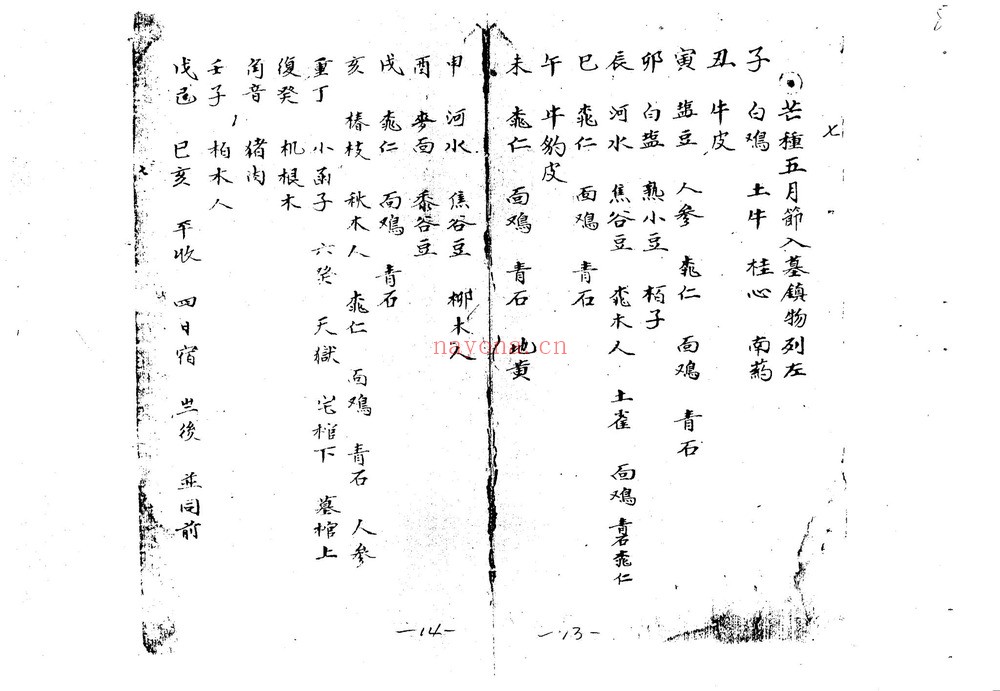 芒種五月節入墓鎮物列左
子 白鳮 土牛 桂心 南药
丑 牛皮
寅 盐豆 人參 桃仁 面鳮 青石
卯 白盐 熟小豆 栢子
辰 河水 焦谷豆 桃木人 土雀 面鳮 青石 桃仁
巳 桃仁 面鳮 青石
午 牛豹皮
未 桃仁 面鳮 青石 地黄
-13-
申 河水 焦谷豆 柳木人
酉 麥面 黍谷豆
戌 桃仁 面鳮 青石
亥 椿枝 秋木人 桃仁 面鳮 青石 人參
重丁 小函子 六癸 天獄 宅棺下 墓棺上
復癸 机根木
角音 猪肉
壬子 柏木人
戊己 巳亥 平收 四日宿 出後 並同前
-14-
nayona.cn